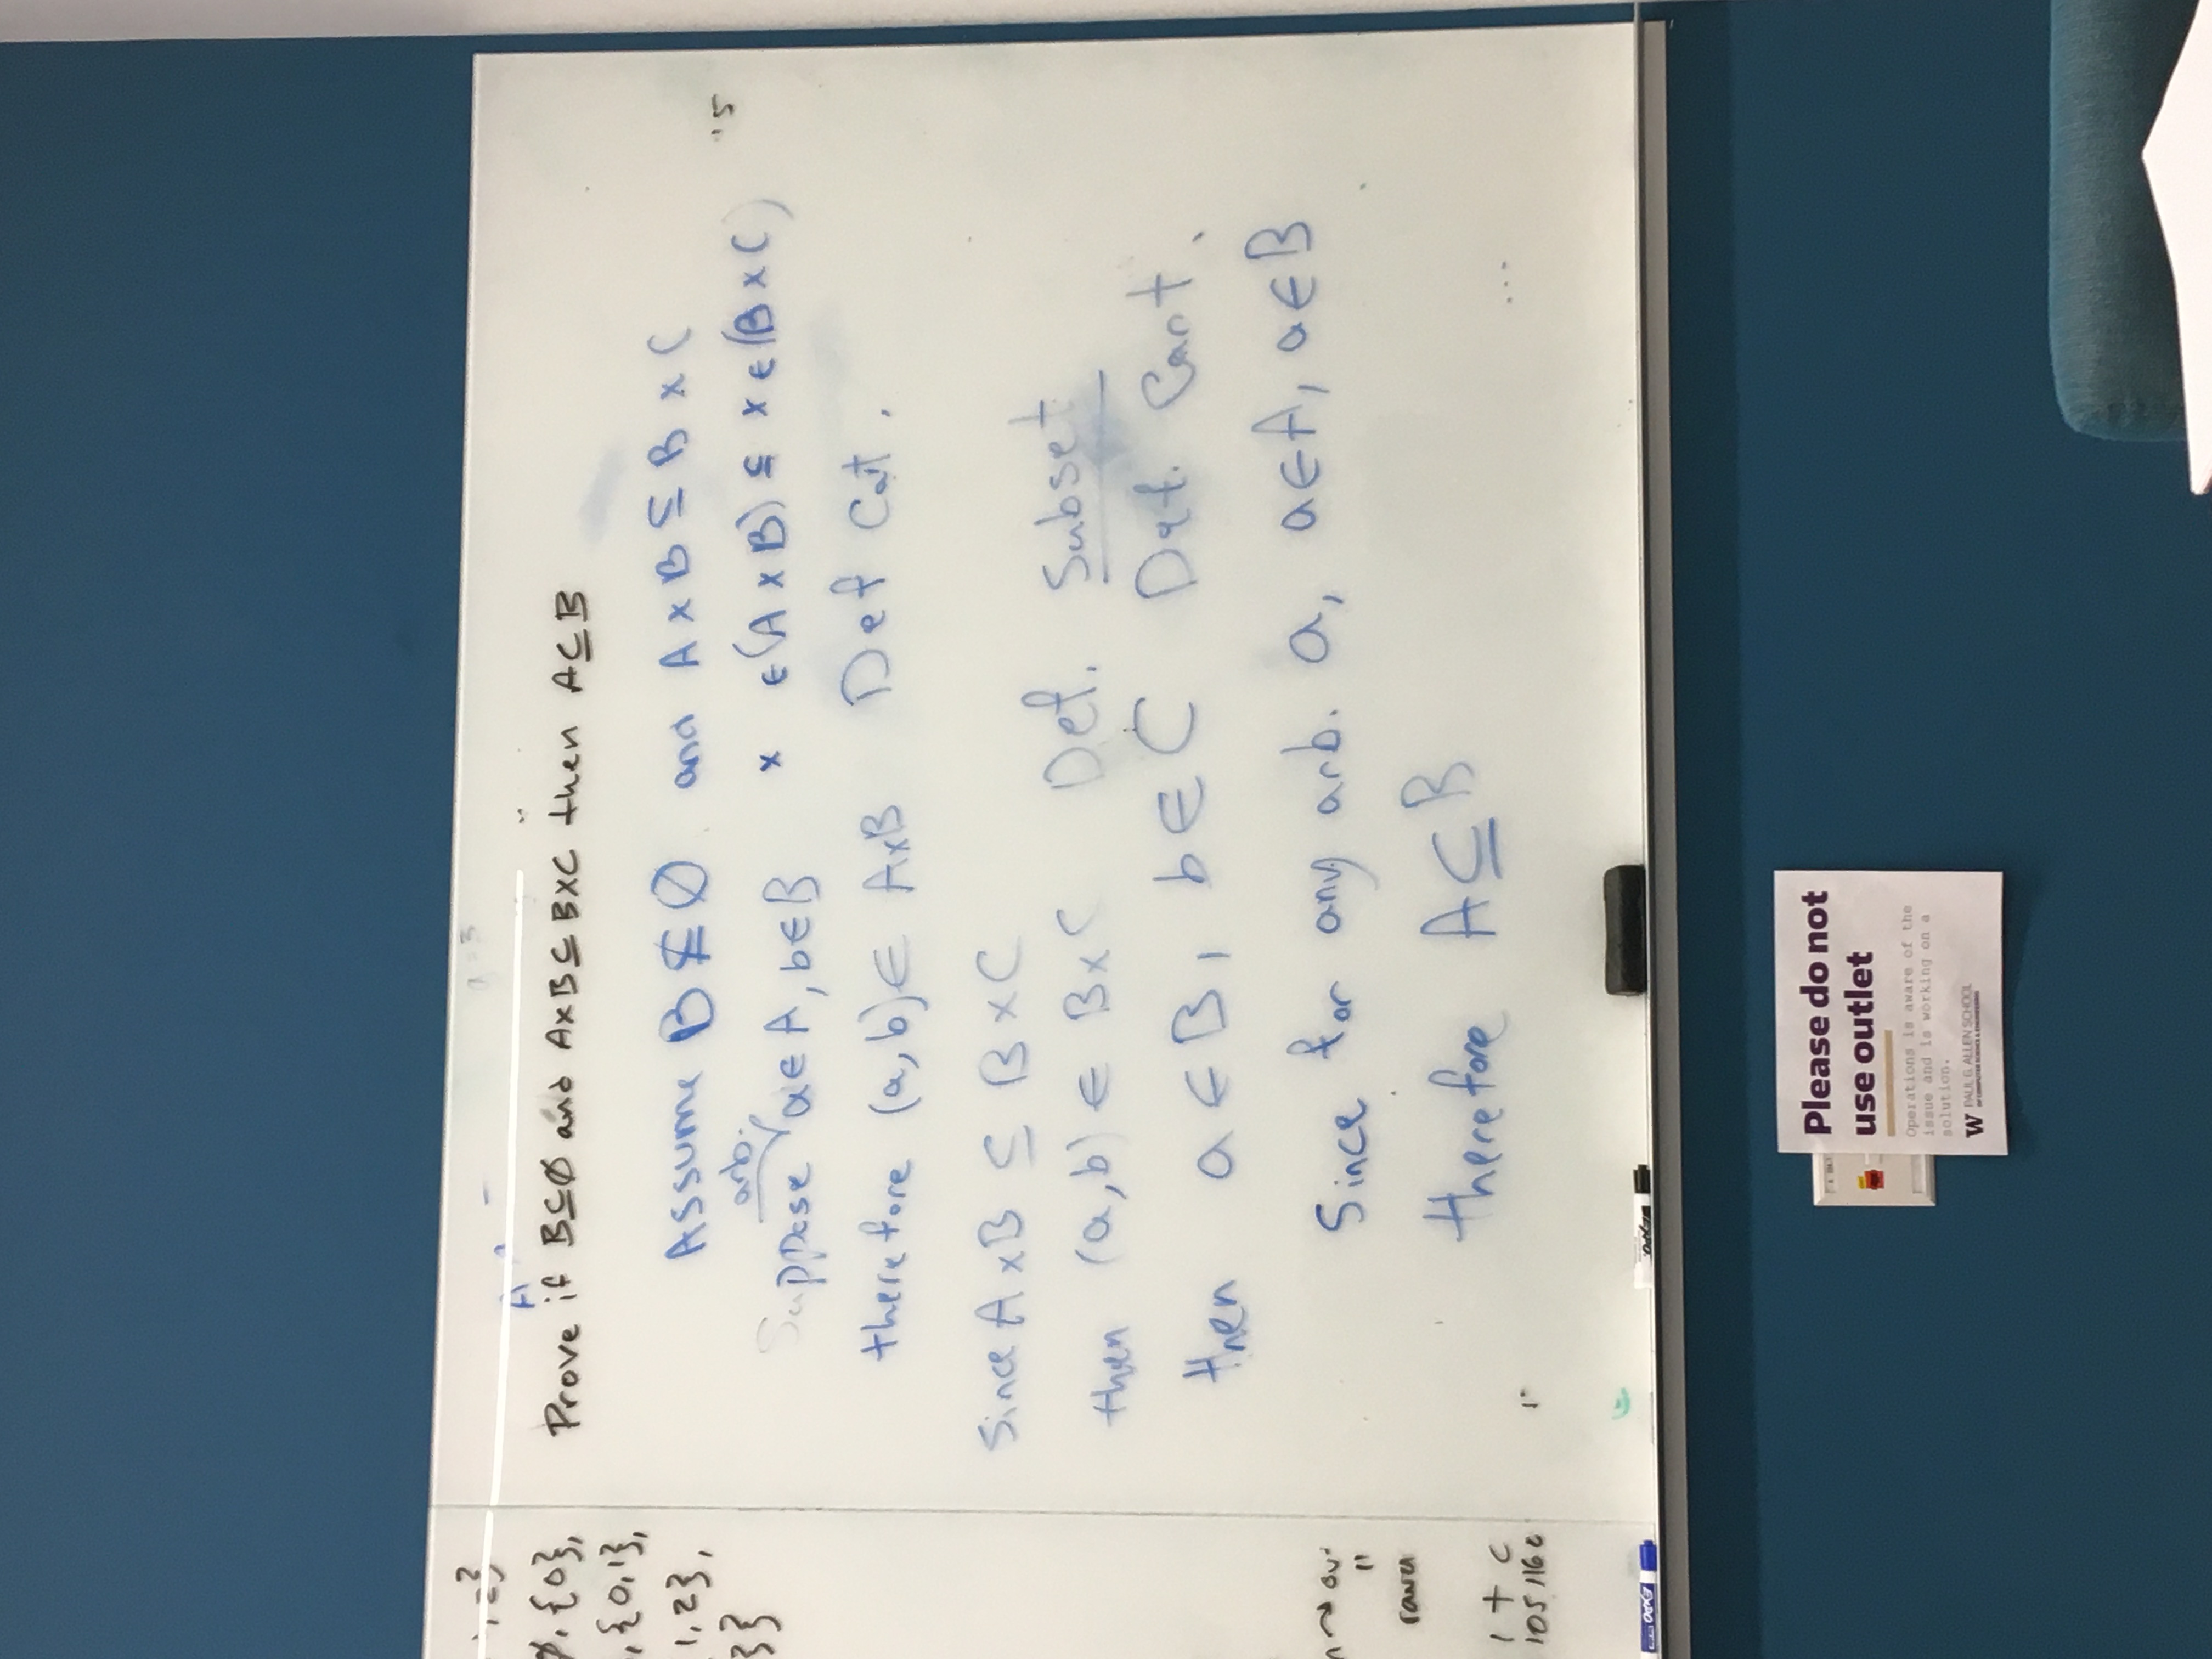 , 2}
∅, {0},
, {0,1},
1,2},
}}
1 + C
g = 3
A
Prove if B⊆∅ and A×B⊆B×C then A⊆B
Assume B⊈∅ and A×B⊆B×C
arb.
Suppose a∈A, b∈B x ∈(A×B) ⊆ x∈(B×C)
'5
therefore (a,b)∈ A×B Def Cat.
Since A×B ⊆ B×C
then (a,b) ∈ B×C Def. Subset
then a∈B, b∈C Def. Cart.
Since for any arb. a, a∈A, a∈B
therefore A⊆B
...
EXPO
EXPO
Please do not
use outlet
Operations is aware of the
issue and is working on a
solution.
W PAUL G. ALLEN SCHOOL
OF COMPUTER SCIENCE & ENGINEERING